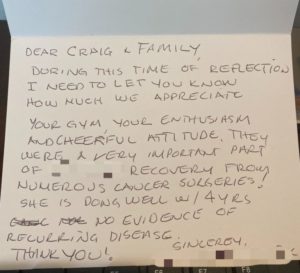 DEAR CRAIG & FAMILY,
DURING THIS TIME OF REFLECTION
I NEED TO LET YOU KNOW
HOW MUCH WE APPRECIATE
YOUR GYM, YOUR ENTHUSIASM
AND CHEERFUL ATTITUDE, THEY
WERE A VERY IMPORTANT PART
OF RECOVERY FROM
NUMEROUS CANCER SURGERIES!
SHE IS DOING WELL W/ 4 YRS
NO EVIDENCE OF
RECURRING DISEASE.
THANK YOU! SINCEREY,